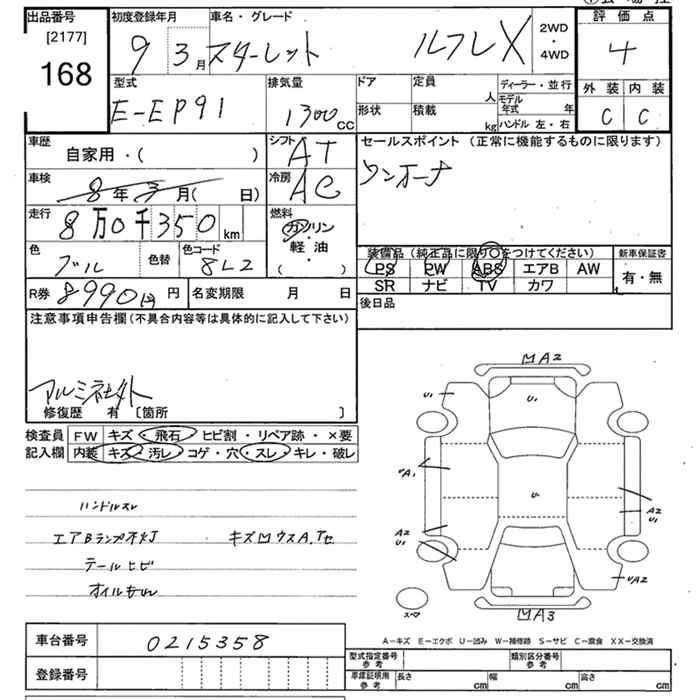 出品番号 初度登録年月 車名・グレード 2WD・4WD 評価点
[2177]
168 9 3月 スターレット ルフレ X 4
型式 排気量 ドア 定員 人 ディーラー・並行 外装 内装
E-EP91 1300cc 形状 積載 kg モデル年式 年 C C
ハンドル 左・右
車歴 自家用・( ) シフト AT セールスポイント (正常に機能するものに限ります)
車検 8年3月( 日) 冷房 AC ワンオーナ
走行 8万0千350km 燃料 ガソリン・軽油・( )
色 ブル 色替 色コード 8L2
装備品 (純正品に限り○をつけてください) 新車保証書
PS PW ABS エアB AW 有・無
SR ナビ TV カワ
R券 8990円 円 名変期限 月 日 後日品
注意事項申告欄(不具合内容等は具体的に記入して下さい)
アルミ社外
修復歴 有 〔箇所 〕
検査員 FW キズ・飛石・ヒビ割・リペア跡・×要
記入欄 内装 キズ・汚レ・コゲ・穴・スレ・キレ・破レ
ハンドルスレ
エアBランプ不灯
テールヒビ
オイルもれ
MA2
U1 U1
A2 U1
A2 U1
UA2
スペア
MA3
A-キズ E-エクボ U-凹み W-補修跡 S-サビ C-腐食 XX-交換済
車台番号 0215358 型式指定番号 参考 類別区分番号 参考
登録番号 車庫証明用 参考 長さ cm 幅 cm 高さ cm